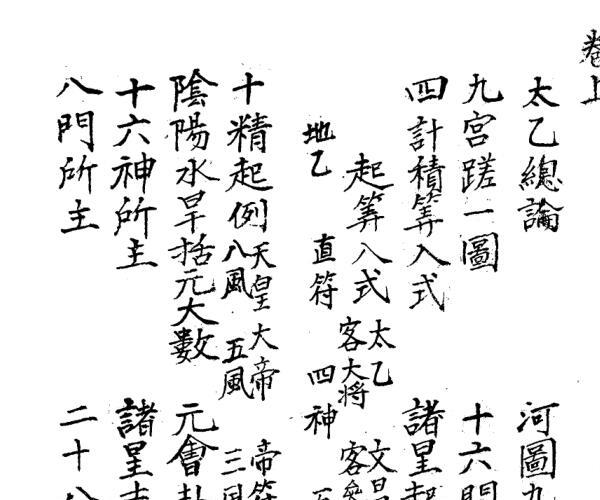 卷上
太乙總論 河圖九
九宮蹉一圖 十六間
四計積筭入式 諸星起
起筭入式 太乙 文昌
客大将 客參
地乙 直符 四神
十精起例 天皇大帝 帝符
八風 五風 三風
陰陽水旱括元大數 元會卦
十六神所主 諸星吉
八門所主 二十八